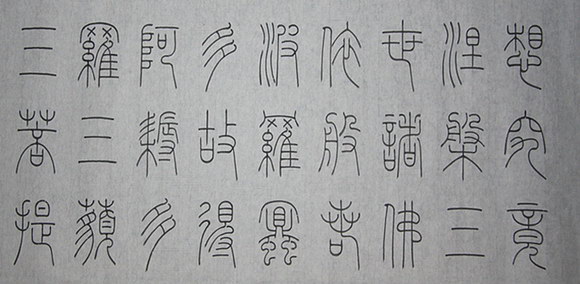 想究竟
涅槃三
世諸佛
依般若
波羅蜜
多故得
阿耨多
羅三藐
三菩提